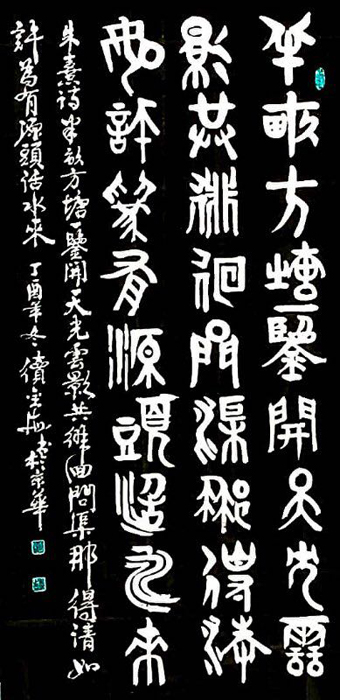 半畝方塘一鑒開天光雲
影共徘徊問渠那得清
如許為有源頭活水來
朱熹詩半畝方塘一鑒開天光雲影共徘徊問渠那得清如
許為有源頭活水來 丁酉年冬 書於京華